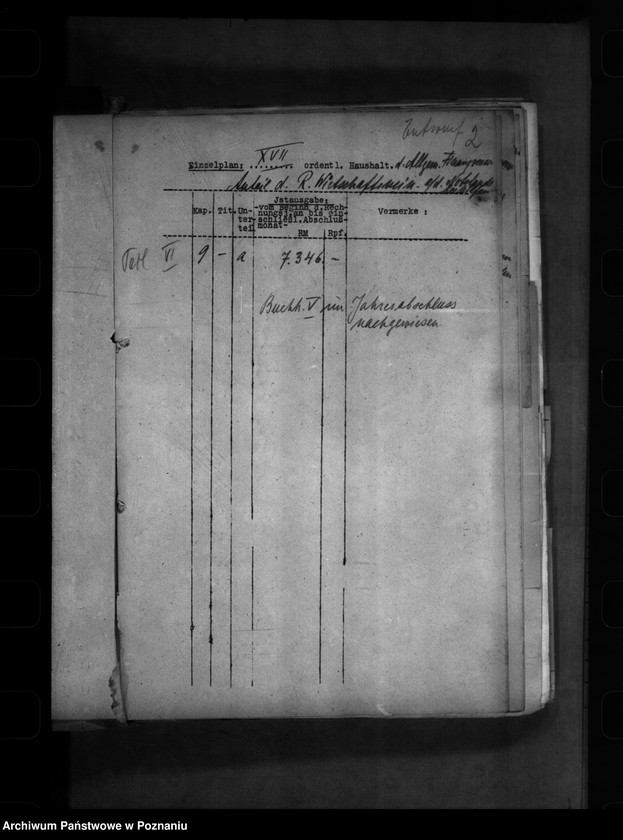 Entwurf 2
Einzelplan: XVII ordentl. Haushalt. d. Allgem. Finanzverw.
Anteil d. R.
Kap. Tit. Un-ter-teil
Istausgabe: vom Beginn d. Rech-nungsj. an bis ein-schließl. Abschluß-monat- RM Rpf.
Vermerke :
Teil VI 9 - a 7.346. -
Buchh. V im Jahresabschluss
nachgewiesen
Archiwum Państwowe w Poznaniu